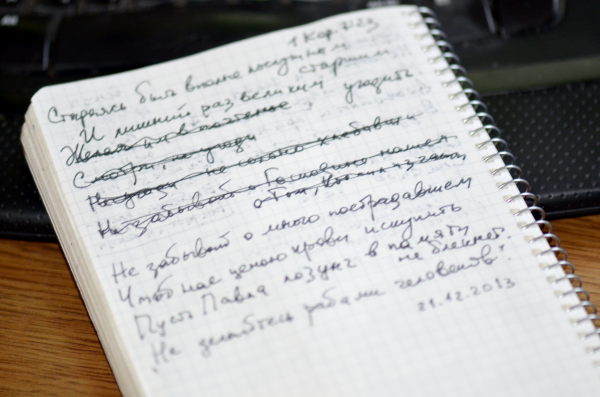 1 Кор. 7:23
Стараясь быть вполне послушным
И лишний раз великим угодить
старшим,
Желая
Смотри, не угоди
Не забывай о
о Том,
Не забывай о много пострадавшем
Чтоб нас ценою крови искупить
Пусть Павла лозунг в памяти
не блекнет:
"Не делайтесь рабами человеков".
21.12.2013